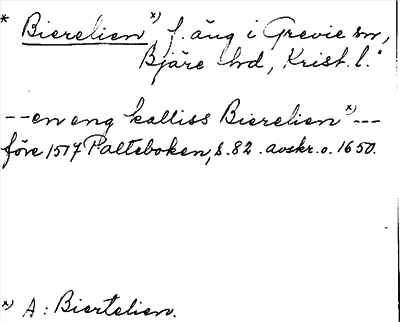 * Bierelien x) f. äng i Grevie sn,
Bjäre hd, Krist. l.
--en eng kalliss Bierelien x)---
före 1517 Palteboken, s. 82. avskr. o. 1650.
x) A: Biertelien.